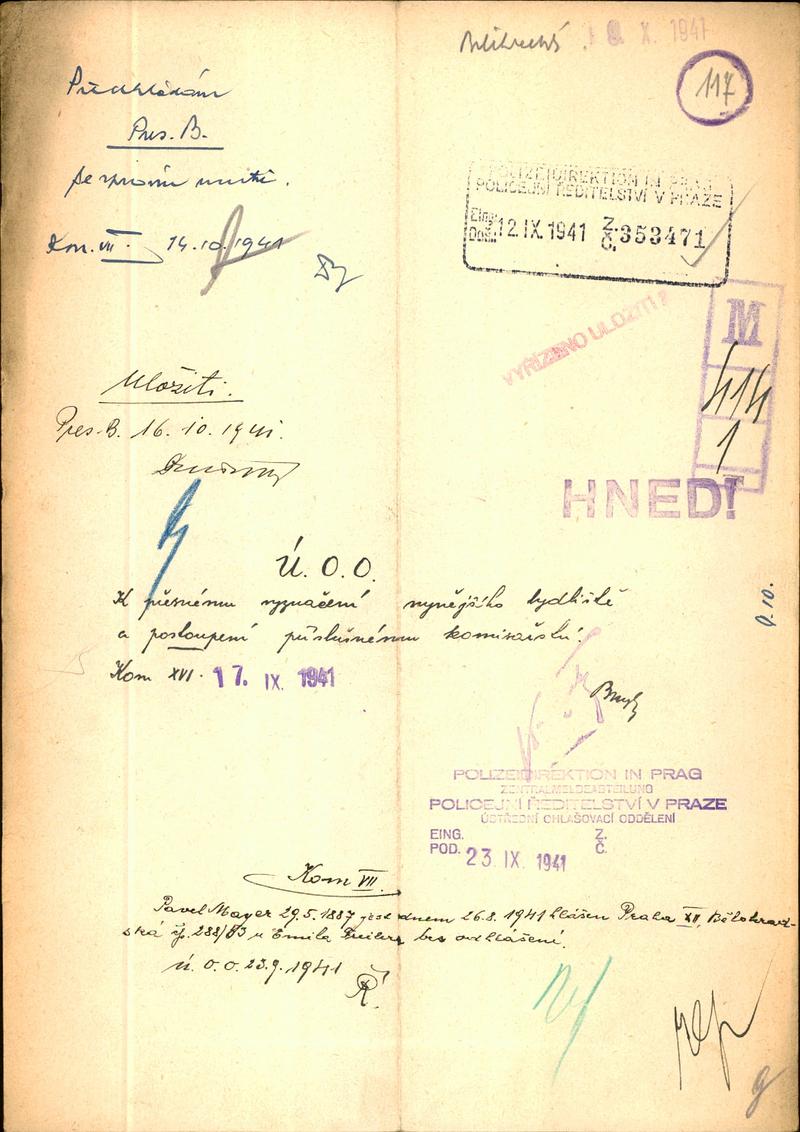 X. 1941
117
Předkládám
Pres. B.
se zprávou uvnitř.
Kom. VII. 14.10.1941
POLIZEIDIREKTION IN PRAG
POLICEJNÍ ŘEDITELSTVÍ V PRAZE
Eing. Došl. 12 IX. 1941 Z. Č. 353471
VYŘÍZENO ULOŽITI!
M
414
1
Uložiti.
Pres. B. 16. 10. 1941.
HNED!
Ú. O. O.
K přesnému vyznačení nynějšího bydliště
a postoupení příslušnému komisařství.
Kom XVI. 17. IX 1941
9. 10.
POLIZEIDIREKTION IN PRAG
ZENTRALMELDEABTEILUNG
POLICEJNÍ ŘEDITELSTVÍ V PRAZE
ÚSTŘEDNÍ OHLAŠOVACÍ ODDĚLENÍ
EING. Z.
POD. 23 IX 1941 Č.
Kom VII.
Pavel Mayer 29.5.1887 jest dnem 26.8.1941 hlášen Praha XII, Bělohrad-
ská čp. 288/83 u Emila bez odhlášení.
ú. o. o. 23.9.1941
Ř.